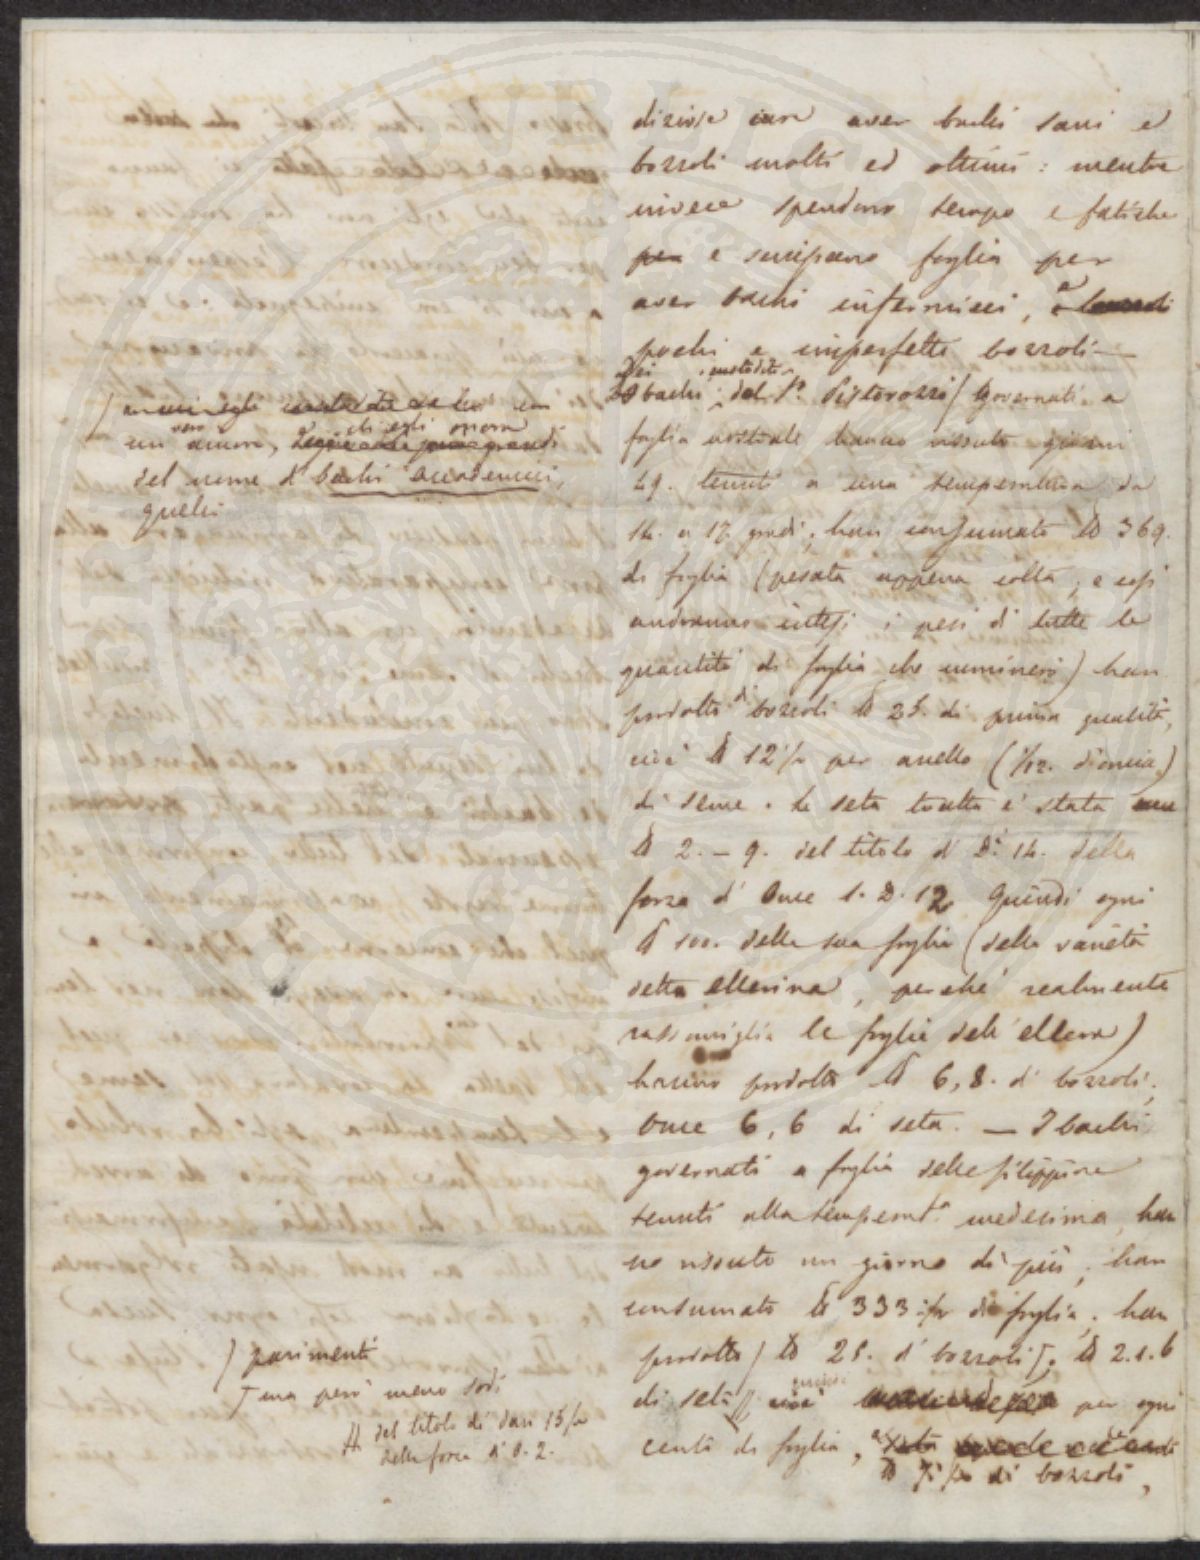 bachi sani e
bozzoli molti ed ottimi: mentre
invece spendono tempo e fatiche
per e sciupano foglia per
aver bachi infermicci, a bozzoli
pochi e imperfetti bozzoli —
bachi custoditi del Sr. Pistorozzi / Governati a
foglia nostrale hanno vissuto giorni
29. tenuti a una temperatura da
14. a 17. gradi, han consumato ℔ 369.
di foglia (pesata appena colta, e così
anderanno intesi i pesi di tutte le
quantità di foglia che nominerò) han
prodotto di bozzoli ℔ 25. di prima qualità,
cioè ℔ 12 1/2 per anello (1/12. d'oncia)
di seme. La seta tratta è stata
℔ 2. — 9. del titolo di D. 14. della
forza d' Once 1. D. 12 Quindi ogni
℔ 100. della sua foglia (della varietà
detta ellerina, perchè realmente
rassomiglia le foglie dell'ellera)
hanno prodotto ℔ 6,8. di bozzoli,
Once 6,6 di seta. — I bachi
governati a foglia delle filippine
tenuti alla temperat.a medesima, han
no vissuto un giorno di più, han
consumato ℔ 333 1/2 di foglia, han
prodotto / ℔ 28. di bozzoli T, ℔ 2.1.6
di seta //, cioè per ogni
cento di foglia,
di bozzoli,
/
un amore, ch' egli onora
del nome di bachi accademici,
quelli
/ parimenti
T ma però meno sodi
// del titolo di dari 15 1/2
della forza di O. 2.